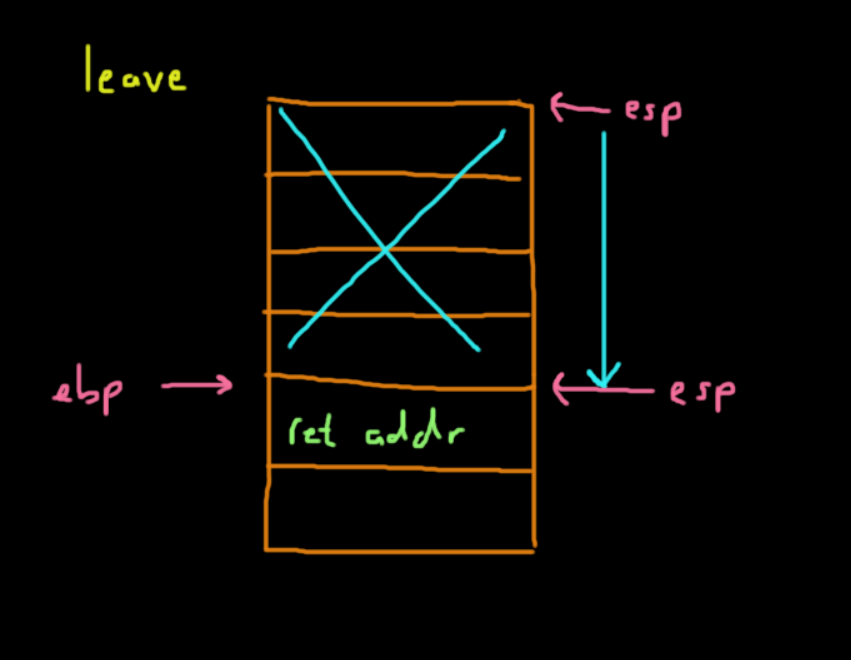 leave
esp
ebp
esp
ret addr